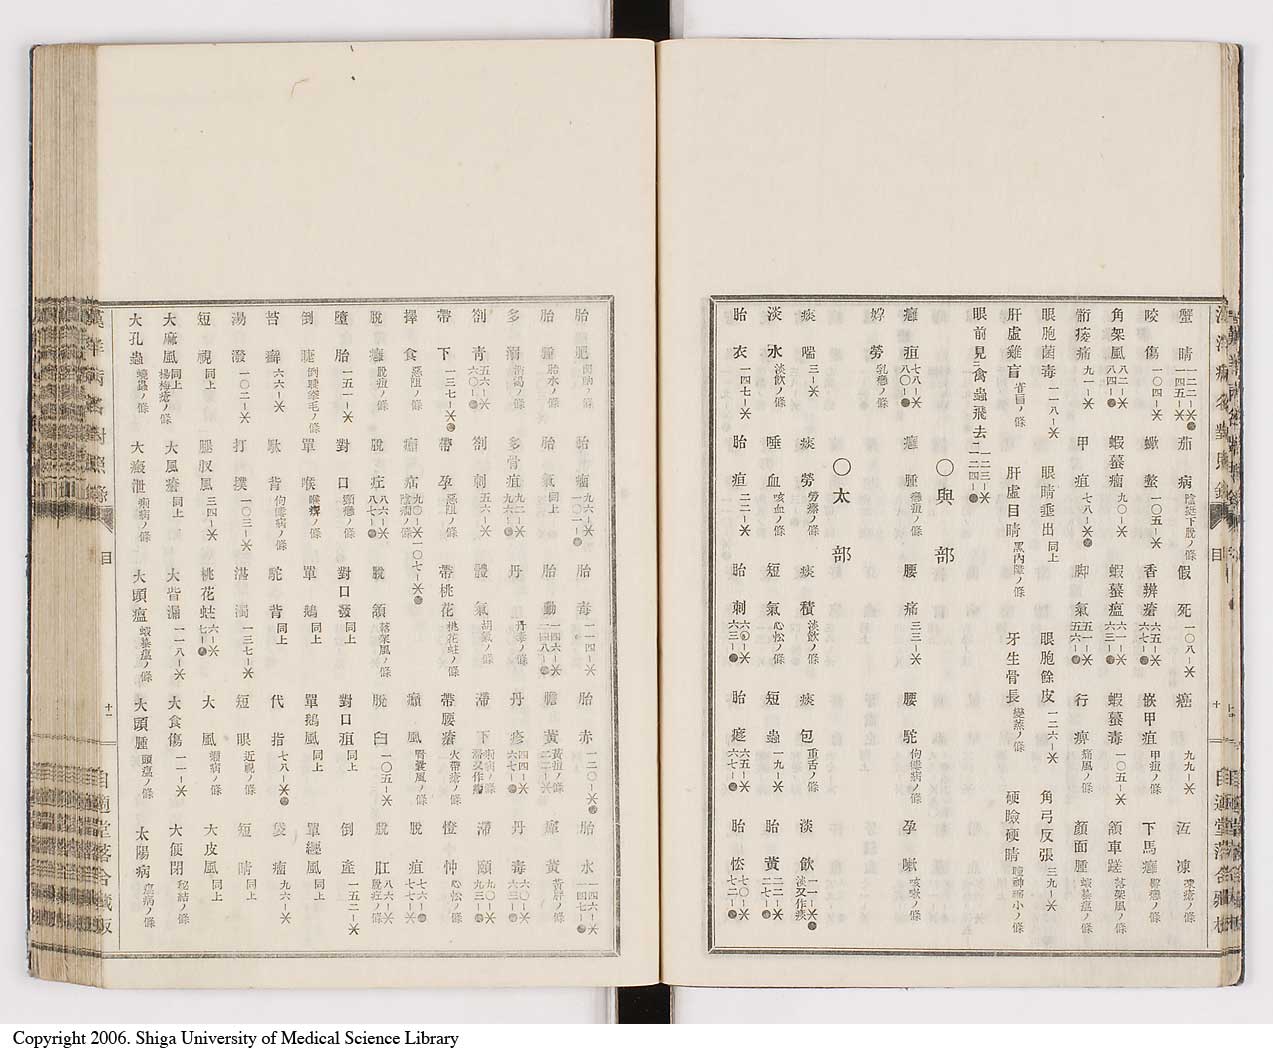 蟹睛 一二二—✕● 一四五—✕ 茄病 陰挺下脫ノ條 假死 一〇八—✕ 癌 九九—✕ 沍凍 凍瘡ノ條
咬傷 一〇四—✕ 蠍螫 一〇五—✕ 香瓣瘡 六五—✕ 六七—● 嵌甲疽 甲疽ノ條 下馬癰
角架風 八二—✕ 八四—● 蝦蟇瘤 九〇—✕ 蝦蟇瘟 六一—✕ 六三—● 蝦蟇毒 一〇五—✕ 頷車蹉 落架風ノ條
骱痠痛 九一—✕ 甲疽 七八—✕● 脚氣 五五—✕ 五六—● 行痹 痛風ノ條 顏面腫 蝦蟇瘟ノ條
眼胞菌毒 一一八—✕ 眼睛垂出 同上 眼胞餘皮 一二六—✕ 角弓反張 三九—✕
肝虛雞盲 雀盲ノ條 肝虛目睛 黑內障ノ條 牙生骨長 變蒸ノ條 硬瞼硬睛
眼前見禽蟲飛去 一二三—✕ 一二四—●
〇與部
癰疽 七八—✕ 八〇—● 癰腫 癰疽ノ條 腰痛 三三—✕ 腰駝 佝僂病ノ條 孕嗽 咳嗽ノ條
㛿勞 乳癰ノ條
〇太部
痰喘 三—✕ 痰勞 勞瘵ノ條 痰積 淡飲ノ條 痰包 重舌ノ條 淡飲 一一—✕● 淡又作痰
淡水 淡飲ノ條 唾血 咳血ノ條 短氣 心忪ノ條 短蟲 一九—✕ 胎黃 二二—✕ 二七—●
胎衣 一四七—✕ 胎疸 二二—✕ 胎刺 六〇—✕ 六三—● 胎㾦 六五—✕ 六七—● 胎忪 七〇—✕ 七二—●
漢洋病名對照錄 目 十 自適堂落合藏板
胎肥 胎瘤 九六—✕ 一〇二—● 胎毒 一一四—✕ 胎赤 一二〇—✕● 胎水 一四六—✕ 一四七—●
胎腫 胎水ノ條 胎氣 同上 胎動 一四六—✕ 一四八—● 膽黃 黃疸ノ條 二二—✕ 癉黃 黃胖ノ條
多溺 消渴ノ條 多骨疽 九二—✕ 九六—● 丹 丹毒ノ條 丹疹 四四—✕ 六七—● 丹毒 六〇—✕ 六三—●
劄青 五六—✕ 六〇—● 劄刺 五六—✕ 體氣 胡氣ノ條 滯下 痢病ノ條 滯又作㿃 滯頤 九〇—✕ 九三—●
帶下 一三七—✕● 帶孕 惡阻ノ條 帶桃花 桃花蛀ノ條 帶腰瘡 火帶瘡ノ條 憕忡 心忪ノ條
擇食 惡阻ノ條 㿗疝 九〇—✕ 一〇七—✕● 㿗風 腎囊風ノ條 脫疽 七六—● 七七—✕
脫癰 脫疽ノ條 脫症 八六—✕ 八七—● 脫頷 落架風ノ條 脫臼 一〇五—✕ 脫肛 八六—✕ 脫症ノ條
墮胎 一五一—✕ 對口 頸癰ノ條 對口發 同上 對口疽 同上 倒產 一五二—✕
倒睫 倒睫拳毛ノ條 單喉 喉痹ノ條 單鵝 同上 單鵝風 同上 單纏風 同上
苔癬 六六—✕ 馱背 佝僂病ノ條 駝背 同上 代指 七八—✕● 袋瘤 九六—✕
湯潑 一〇二—✕ 打撲 一〇三—✕ 湛濁 一三七—✕ 短眼 近視ノ條 短睛 同上
短視 同上 腿肞風 三四—✕ 桃花蛀 六—✕ 七—● 大風 癩病ノ條 大皮風 同上
大麻風 同上 楊梅瘡ノ條 大風瘡 同上 大眥漏 一一八—✕ 大食傷 一一—✕ 大便閉 秘結ノ條
大孔蟲 蟯蟲ノ條 大瘕泄 痢病ノ條 大頭瘟 蝦蟇瘟ノ條 大頭腫 頭瘟ノ條 太陽病 瘟病ノ條
漢洋病名對照錄 目 十一 自適堂落合藏板
Copyright 2006. Shiga University of Medical Science Library